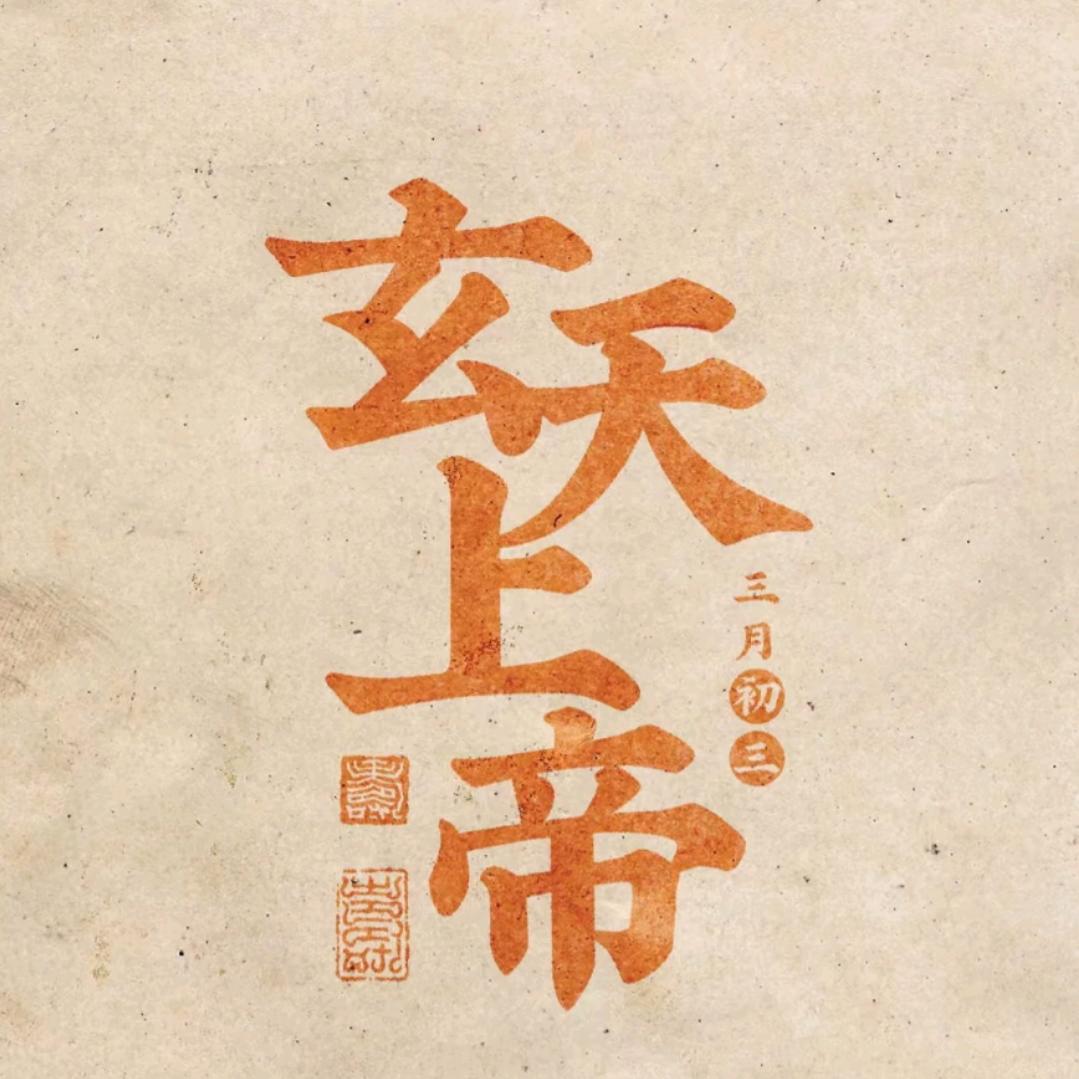 玄天上帝
三月初三